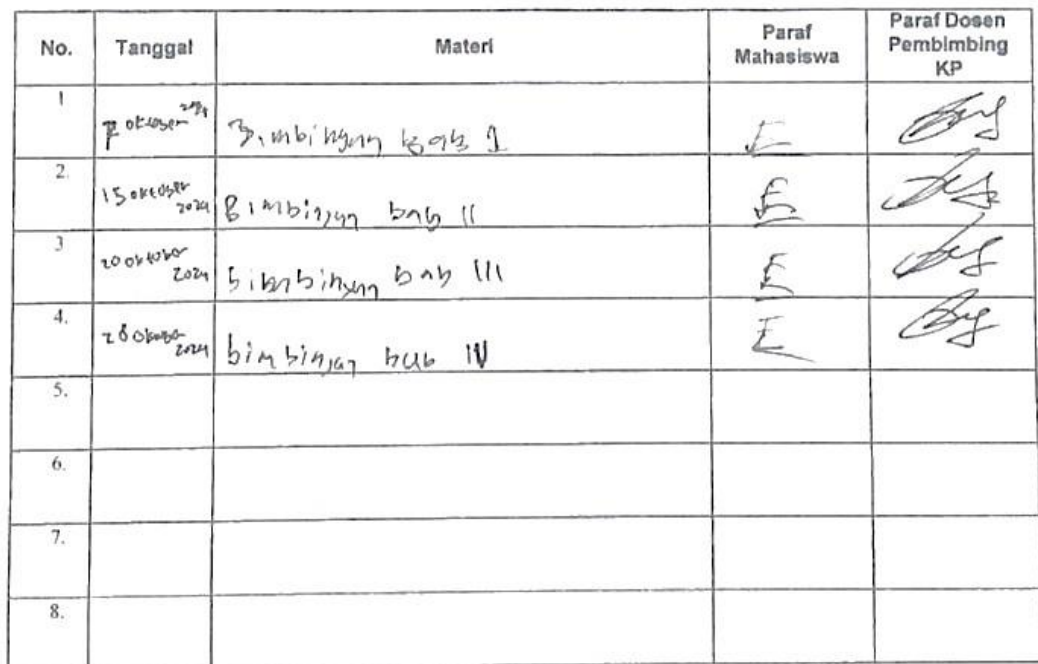 No. Tanggal Materi Paraf Mahasiswa Paraf Dosen Pembimbing KP
1 7 oktober 2024 Bimbingan bab I E
2. 15 oktober 2024 Bimbingan bab II E
3 20 oktober 2024 bimbingan bab III E
4. 28 oktober 2024 bimbingan bab IV E
5.
6.
7.
8.